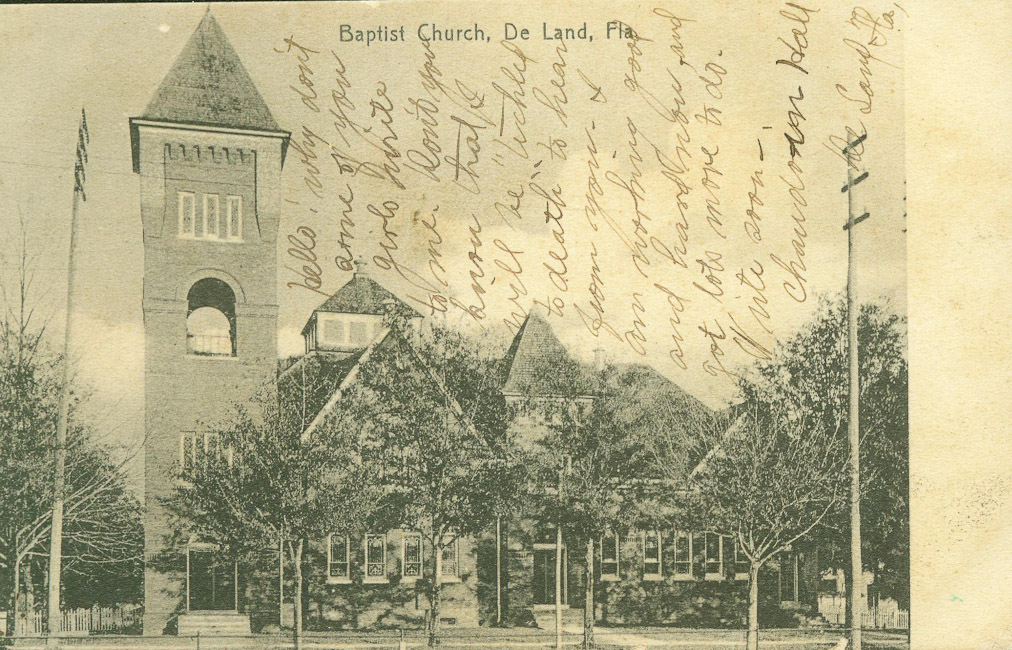 Baptist Church, De Land, Fla.
hello! why don't
some of you
girls write
to me. Don't you
know that I
will be "tickled
to death" to hear
from you - I
am working good
and hard now and
got lots more to do.
Write soon -
Chaudoin Hall
De Land
Fla,